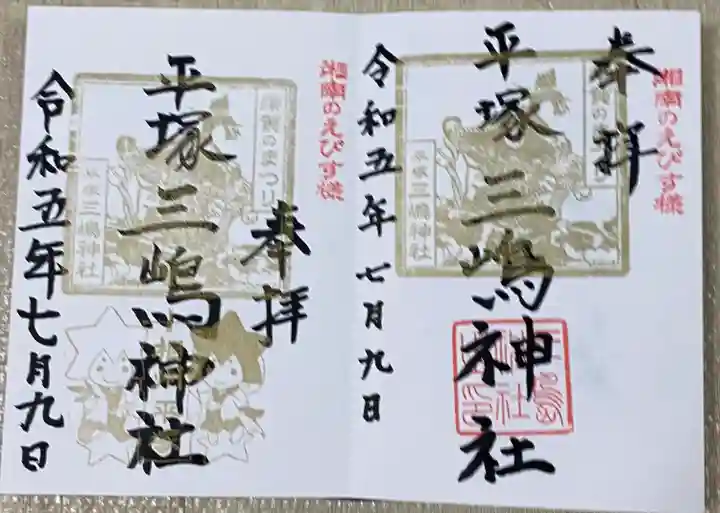 湘南のえびす様
奉拝
平塚三嶋神社
須賀のまつり
平塚三嶋神社
令和五年七月九日
湘南のえびす様
奉拝
平塚三嶋神社
須賀のまつり
平塚三嶋神社
令和五年七月九日